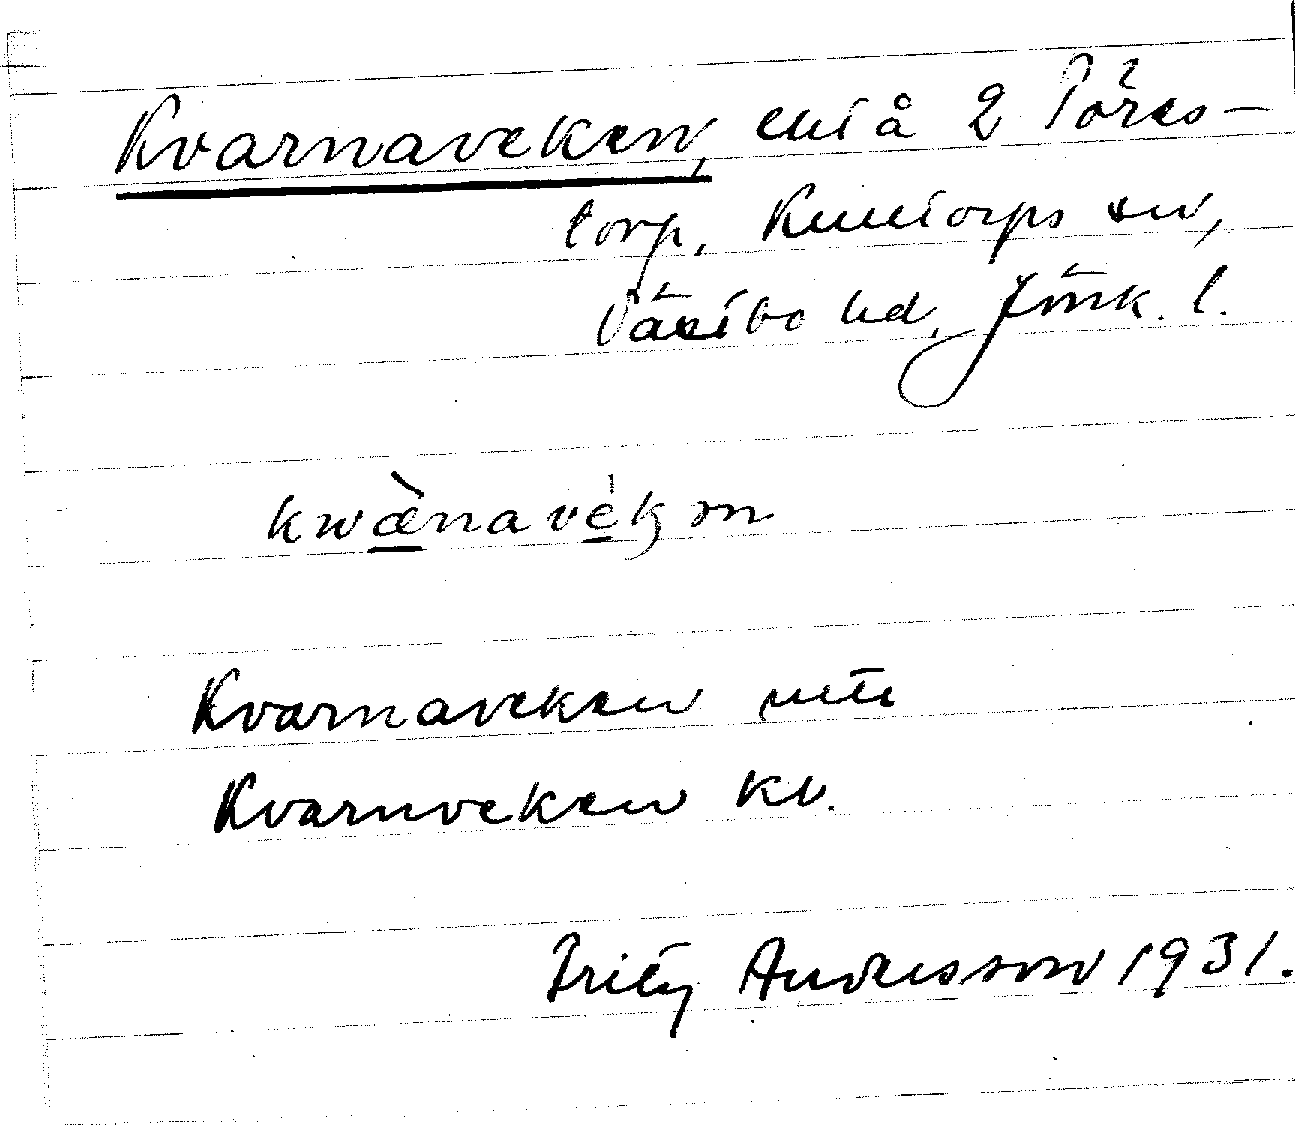 Kvarnaveken, å 2 Töres-
torp, Kulltorps sn,
Västbo hd, Jönk. l.
kwæ̀navékȝən
Kvarnaveken
Kvarnveken kv.
Fritz Andersson 1931.